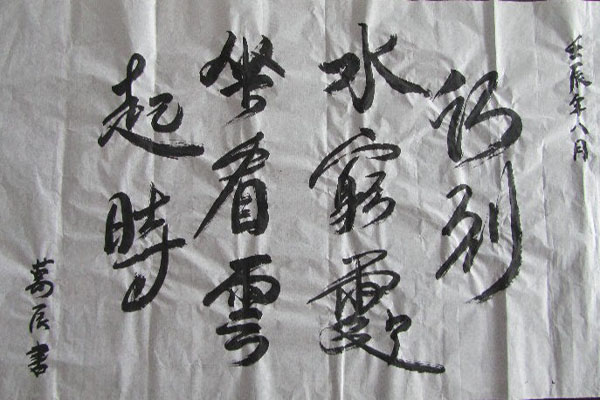 壬辰年八月
行到
水窮處
坐看雲
起時
萬辰書